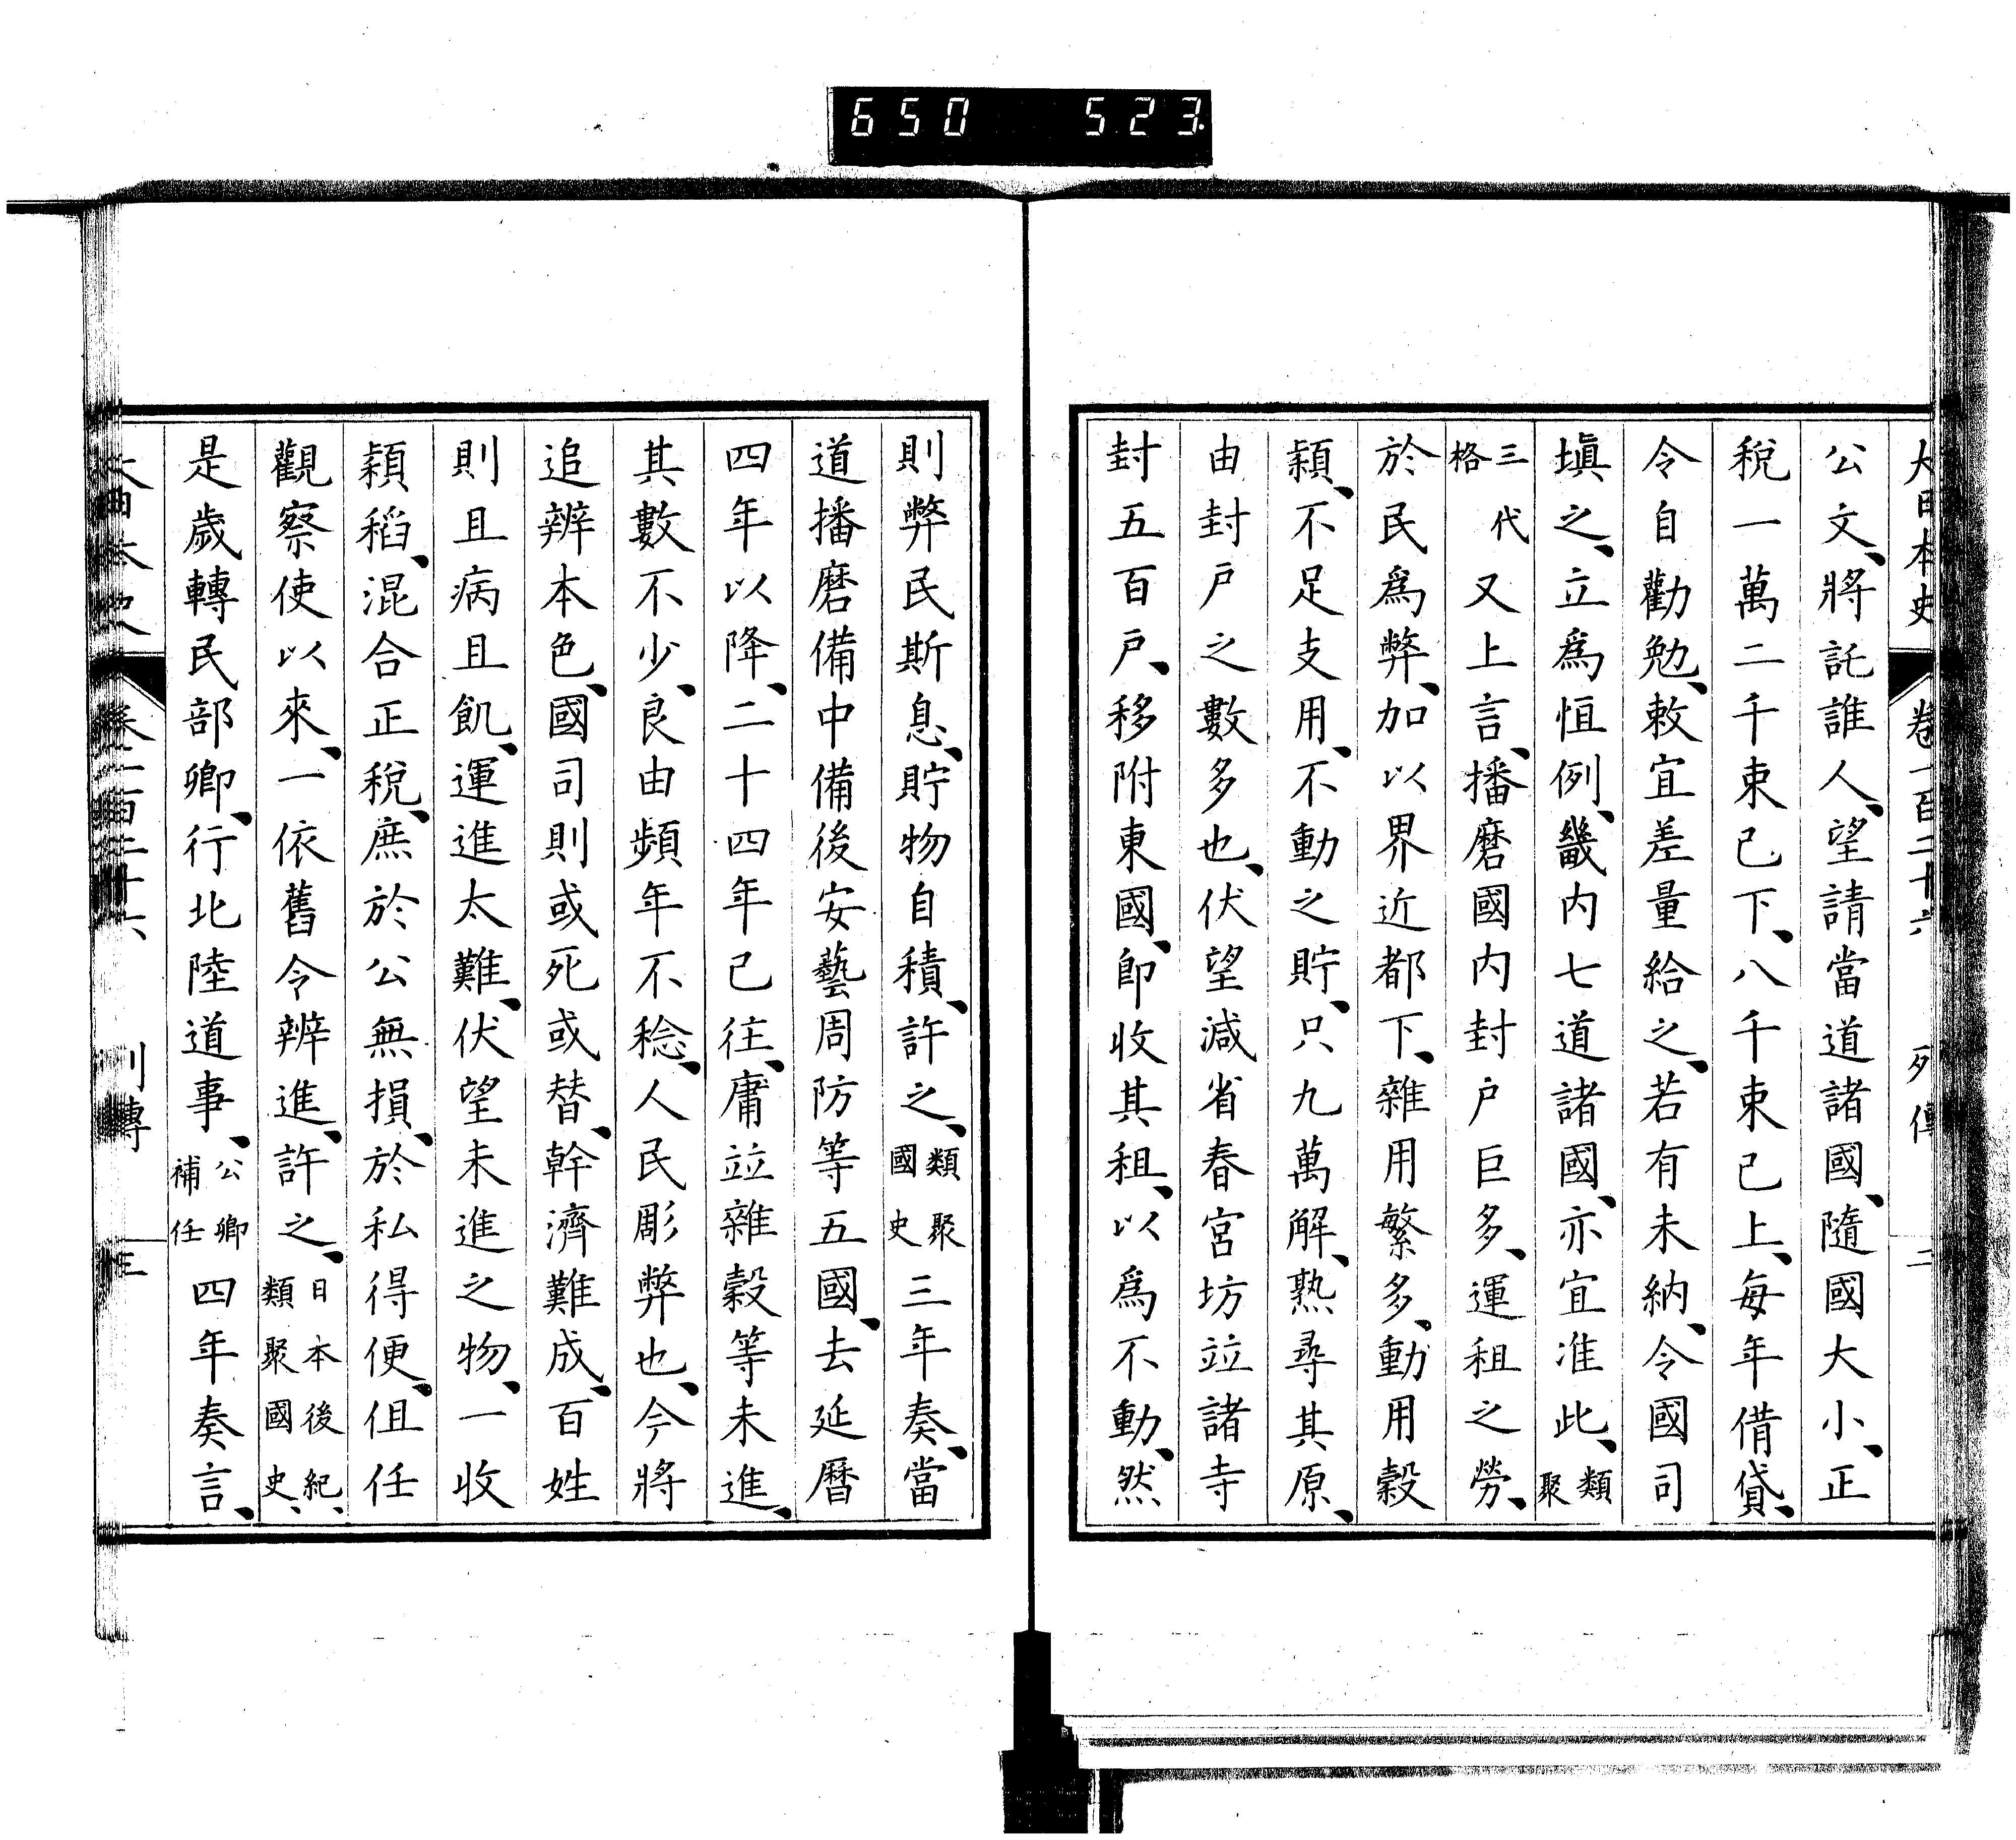 650 523
大日本史 卷一百二十六 列傳 二
公文、將託誰人、望請當道諸國、隨國大小、正
稅一萬二千束已下、八千束已上、每年借貸、
令自勸勉、敕宜差量給之、若有未納、令國司
塡之、立爲恒例、畿内七道諸國、亦宜准此、類聚
三代格 又上言、播磨國内封戶巨多、運租之勞、
於民爲弊、加以界近都下、雜用繁多、動用穀
穎、不足支用、不動之貯、只九萬解、熟尋其原、
由封戶之數多也、伏望減省春宮坊竝諸寺
封五百戶、移附東國、卽收其租、以爲不動、然
則弊民斯息、貯物自積、許之、類聚國史 三年奏、當
道播磨備中備後安藝周防等五國、去延曆
四年以降、二十四年已往、庸竝雜穀等未進、
其數不少、良由頻年不稔、人民彫弊也、今將
追辨本色、國司則或死或替、幹濟難成、百姓
則且病且飢、運進太難、伏望未進之物、一收
穎稻、混合正稅、庶於公無損、於私得便、但任
觀察使以來、一依舊令辨進、許之、日本後紀、類聚國史、
是歲轉民部卿、行北陸道事、公卿補任 四年奏言、
大日本史 卷一百二十六 列傳 三